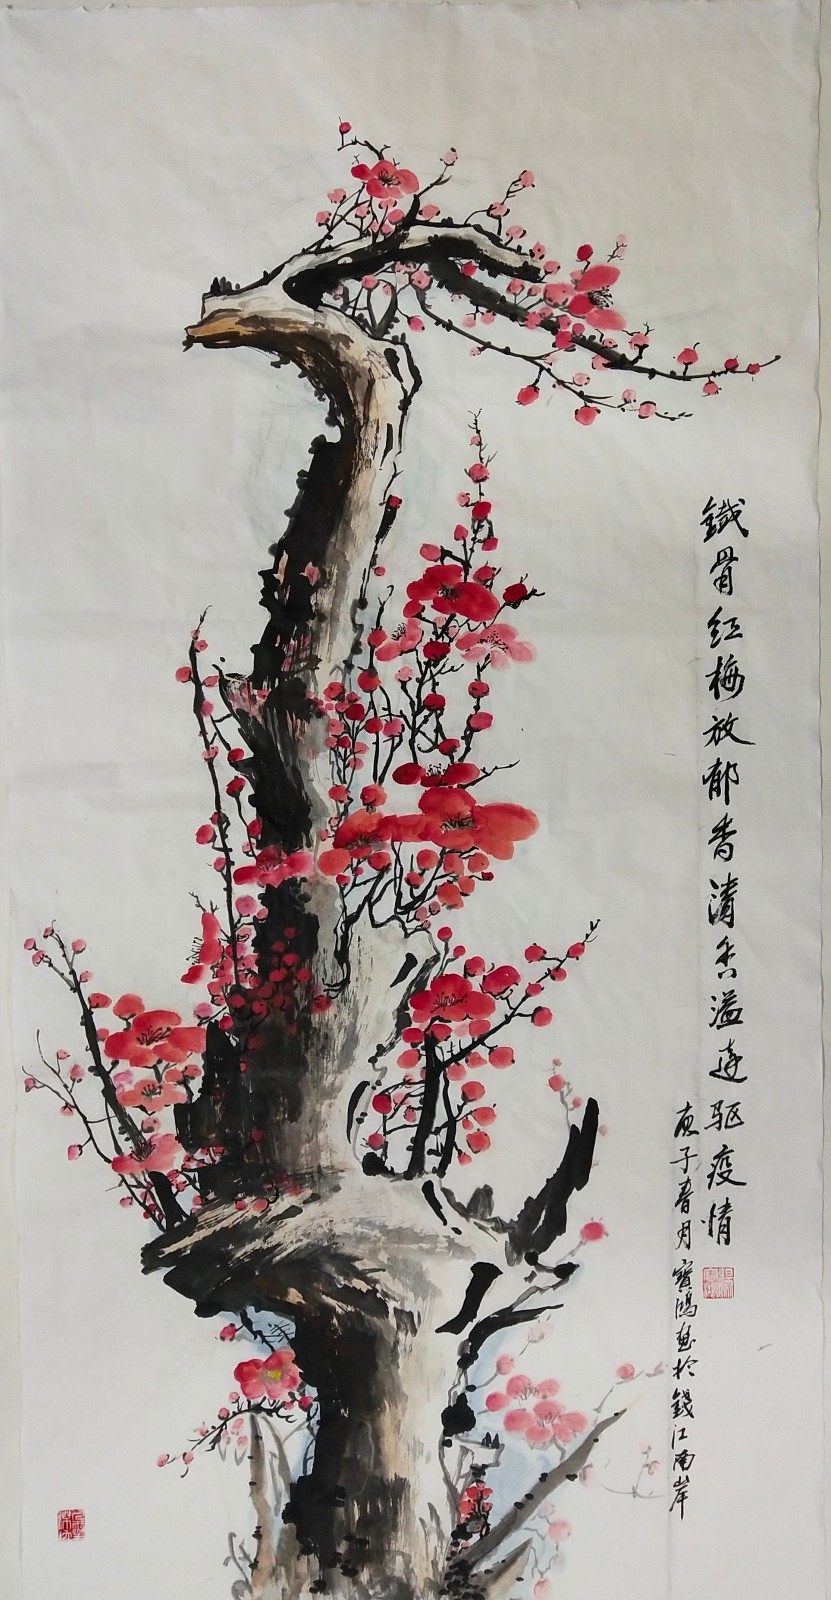 鐵骨红梅放郁香清香溢远驱疫情
庚子春月寳鴻画於錢江南岸